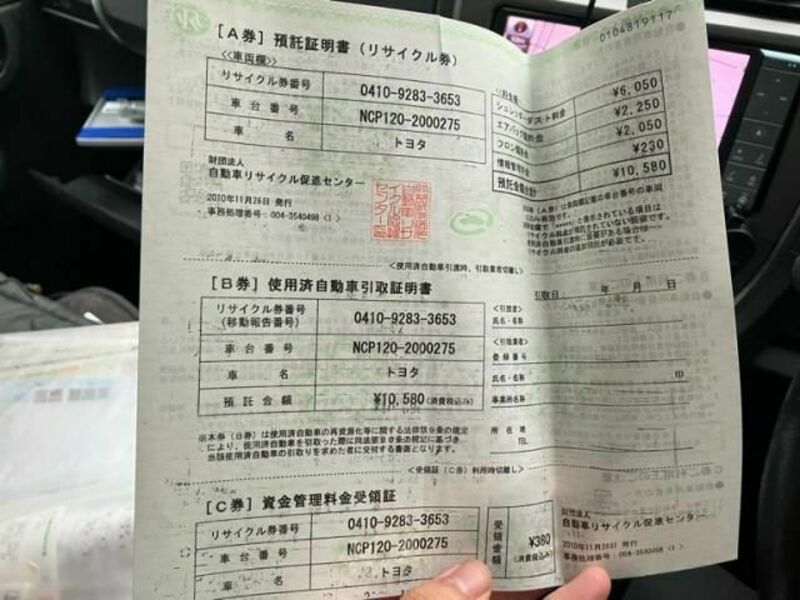 0104819117
[A券] 預託証明書(リサイクル券)
<<車両欄>>
リサイクル券番号 0410-9283-3653
車台番号 NCP120-2000275
車名 トヨタ
シュレッダーダスト料金 ¥6,050
エアバッグ類料金 ¥2,250
フロン類料金 ¥2,050
情報管理料金 ¥230
預託金額合計 ¥10,580
財団法人
自動車リサイクル促進センター
2010年11月26日 発行
事務処理番号:004-3540498 <1>
<使用済自動車引渡時、引取業者切離し>
[B券] 使用済自動車引取証明書
引取日: 年 月 日
リサイクル券番号
(移動報告番号) 0410-9283-3653
車台番号 NCP120-2000275
車名 トヨタ
預託金額 ¥10,580 (消費税込み)
<引渡者>
氏名・名称
<引取業者>
登録番号
氏名・名称 ID
事業所名称
所在地
TEL
※本券(B券)は使用済自動車の再資源化等に関する法律第9条の規定
により、使用済自動車を引取った際に同法第80条の規定に基づき
当該使用済自動車の引取りを求めた者に交付する書面となります。
<受領証(C券)利用時切離し>
[C券] 資金管理料金受領証
リサイクル券番号 0410-9283-3653
車台番号 NCP120-2000275
車名 トヨタ
受領金額 ¥380
(消費税込み)
財団法人
自動車リサイクル促進センター
2010年11月26日 発行
事務処理番号:004-3540498 <1>